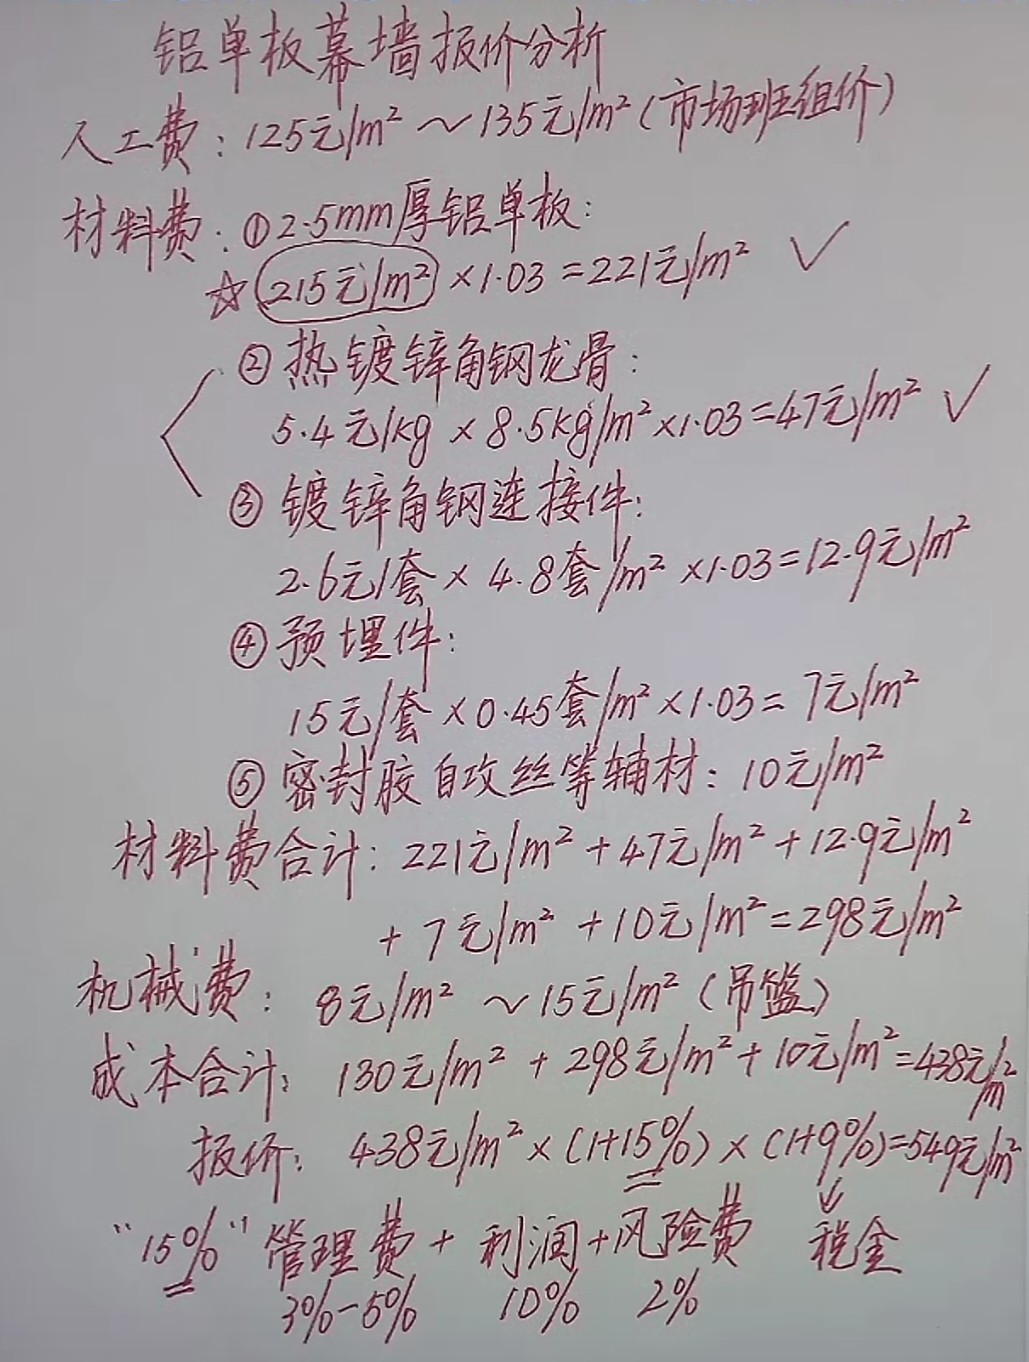 铝单板幕墙报价分析
人工费：125元/m²～135元/m²（市场班组价）
材料费：①2.5mm厚铝单板：
☆215元/m²×1.03=221元/m² ✓
②热镀锌角钢龙骨：
5.4元/kg×8.5kg/m²×1.03=47元/m² ✓
③镀锌角钢连接件：
2.6元/套×4.8套/m²×1.03=12.9元/m²
④预埋件：
15元/套×0.45套/m²×1.03=7元/m²
⑤密封胶自攻丝等辅材：10元/m²
材料费合计：221元/m²+47元/m²+12.9元/m²
+7元/m²+10元/m²=298元/m²
机械费：8元/m²～15元/m²（吊篮）
成本合计：130元/m²+298元/m²+10元/m²=438元/m²
报价：438元/m²×(1+15%)×(1+9%)=549元/m²
“15%”管理费+利润+风险费 税金
3%-5% 10% 2%